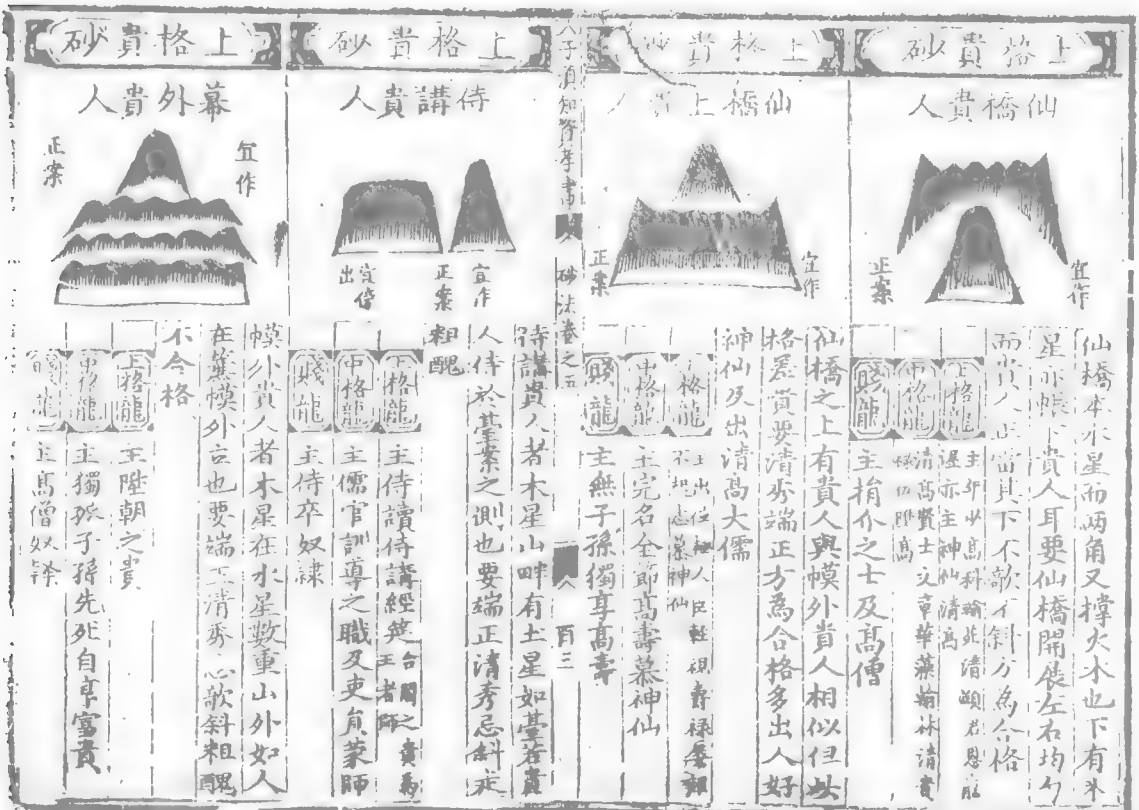 上格貴砂
仙橋貴人
宜作
正案
仙橋本水星而兩角又撑火木也下有木
星亦帳下貴人耳要仙橋開展左右均匀
而貴人正當其下不欹不斜方為合格
上格龍
遲亦主神仙清高
中格龍
清高賢士文章華藻翰林清貴
賤龍
主捎介之士及髙僧
上格貴砂
仙橋上貴人
宜作
正案
仙橋之上有貴人與幙外貴人相似但此
格為貴要清秀端正方為合格多出人好
神仙及出清高大儒
上格龍
主出位極人臣輕視壽祿
慕神仙
中格龍
主完名全節高壽慕神仙
賤龍
主無子孫獨享高壽
人子須知資孝書
砂法卷之五
百三
上格貴砂
侍講貴人
宜作
正案
宜傍
出
侍講貴人者木星山畔有土星如臺若貴
人侍於臺案之側也要端正清秀忌斜走
粗醜
上格龍
主侍讀侍講經筵
台閣之貴為
王者師
中格龍
主儒官訓導之職及吏員蒙師
賤龍
主侍卒奴隸
上格貴砂
幕外貴人
宜作
正案
幙外貴人者木星在水星數重山外如人
在簾幙外立也要端正清秀 欹斜粗醜
不合格
上格龍
主陞朝之貴
中格龍
主獨孤子孫先死自享富貴
賤龍
主髙僧奴